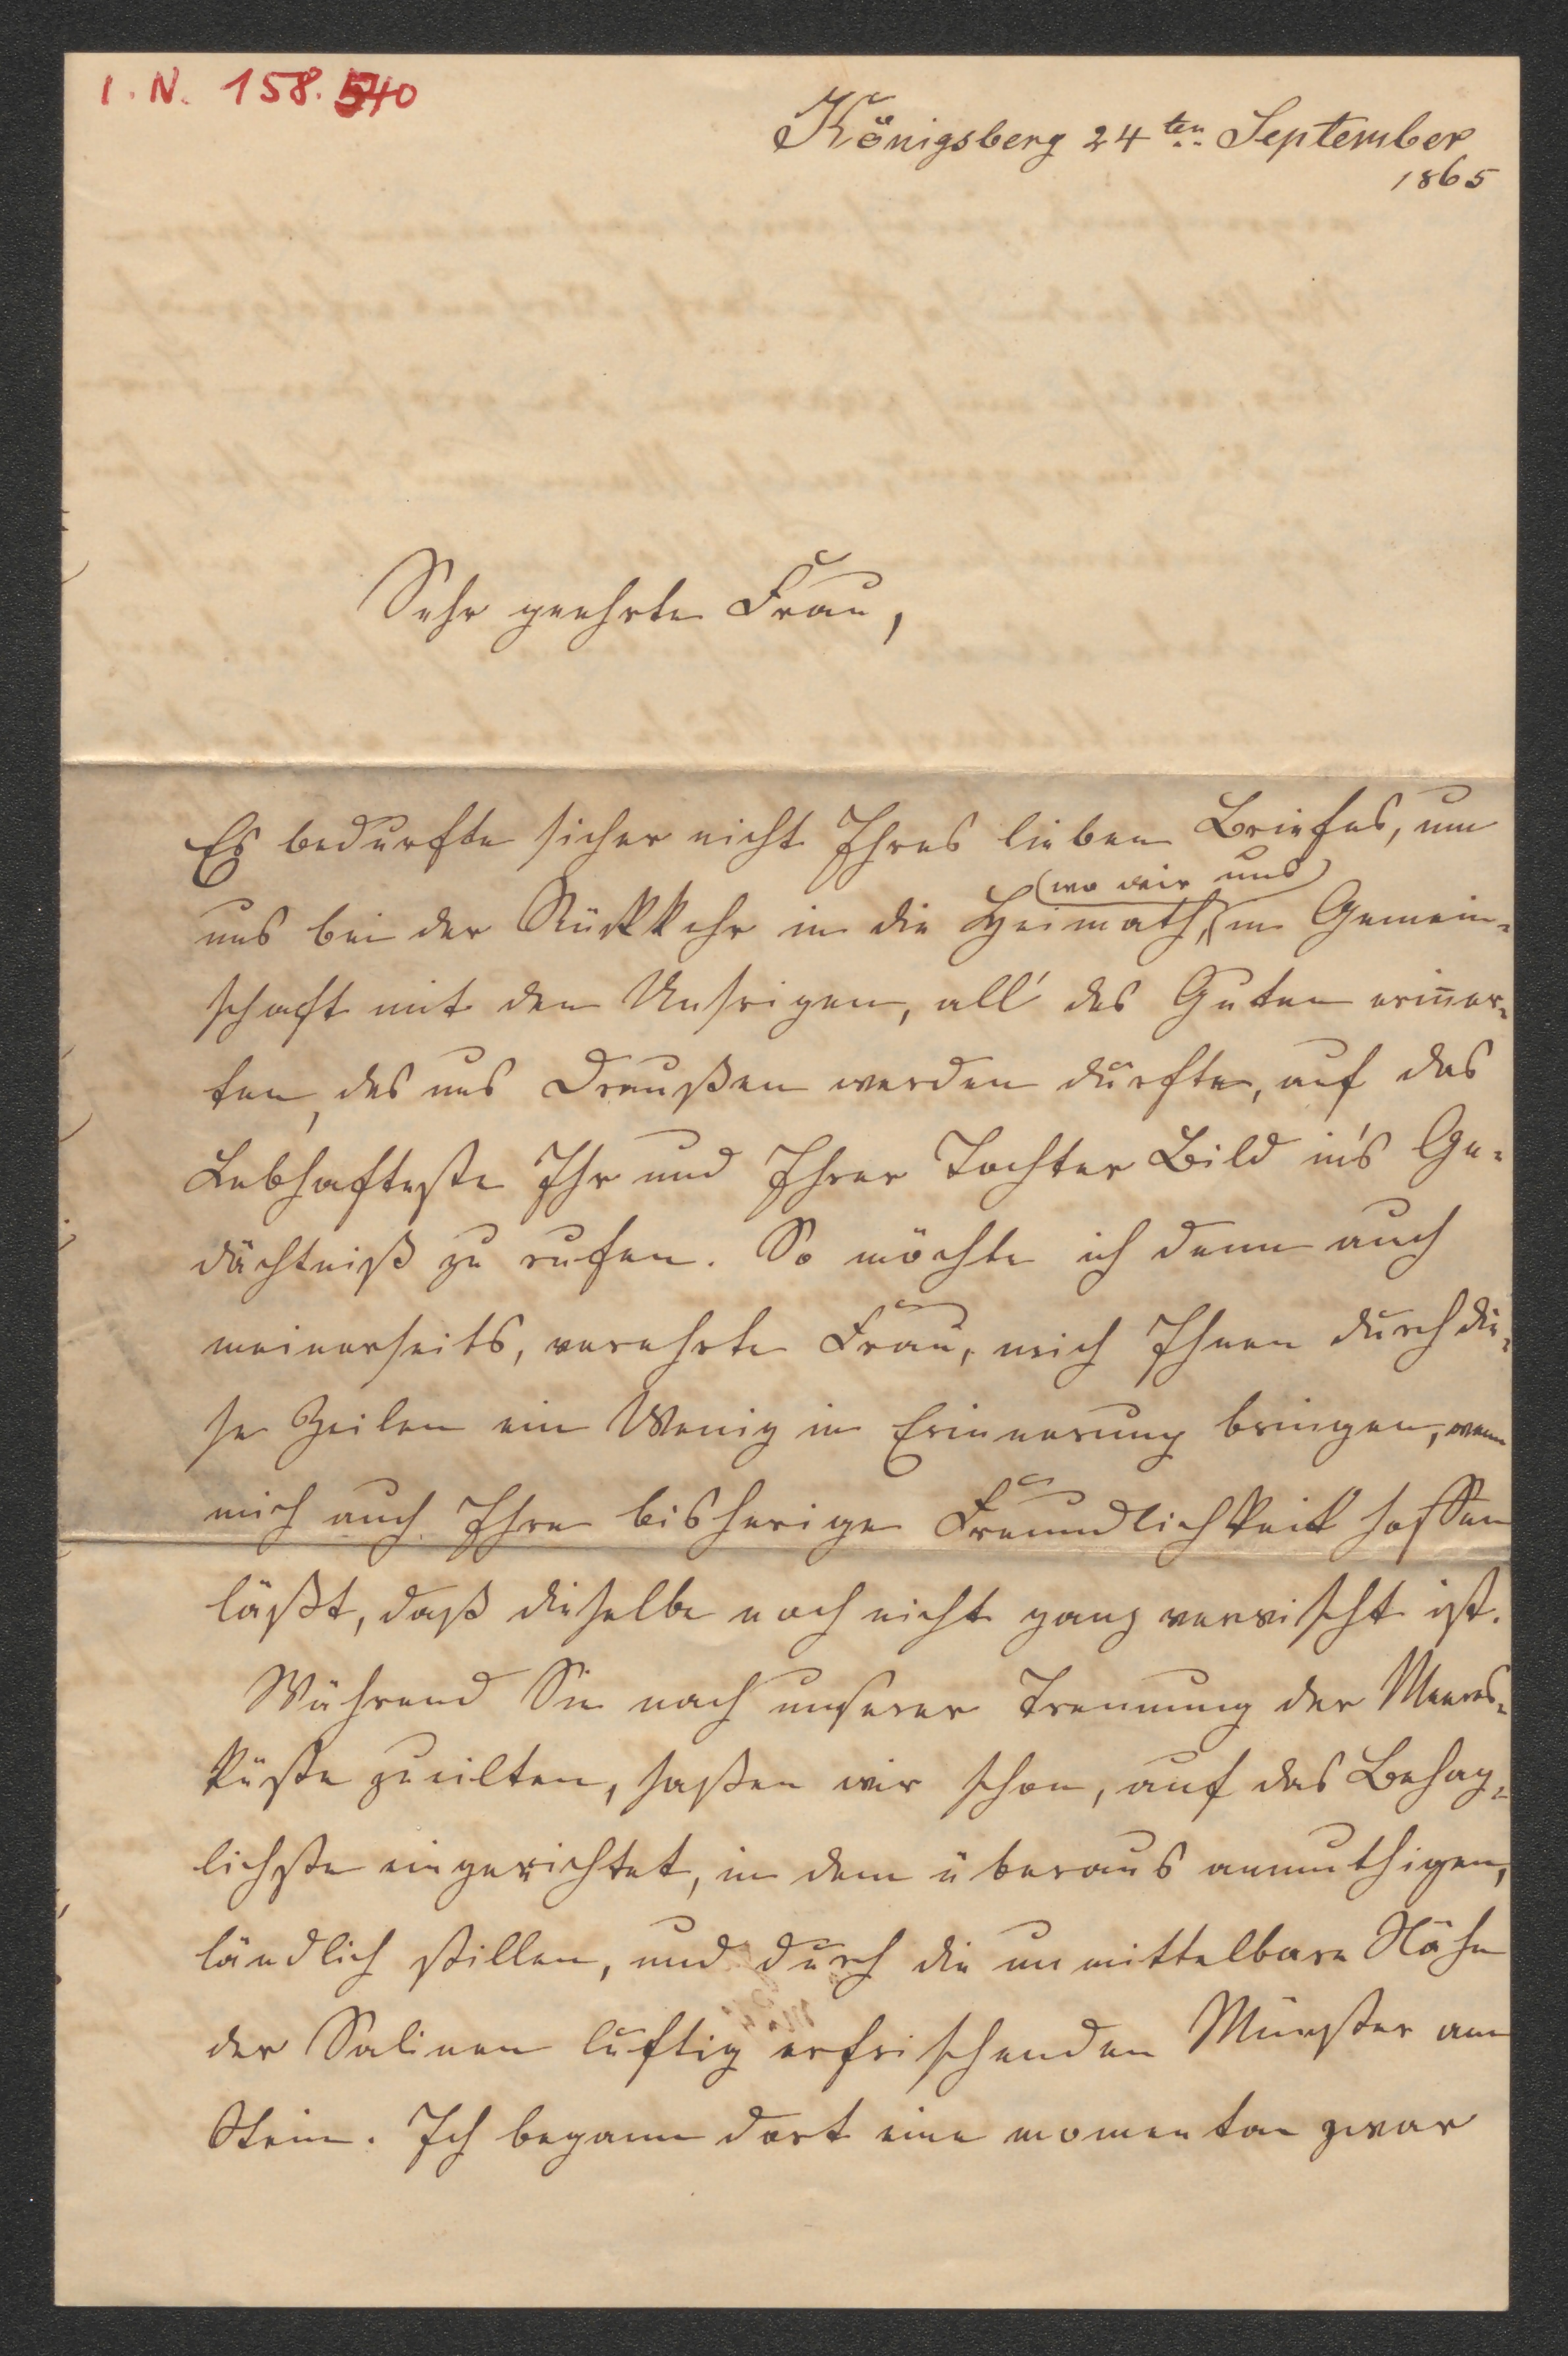 I. N. 158.540
Königsberg 24ten September
1865
Sehr geehrte Frau,
Es bedurfte sicher nicht Ihres lieben Briefes, um
(wo wir uns)
uns bei der Rückkehr in die Heimath, in Gemein-
schaft mit den Unsrigen, all' des Guten erinner-
ten, das uns Draußen werden durfte, auf das
Lebhafteste Ihr und Ihrer Tochter Bild in's Ge-
dächtniß zu rufen. So möchte ich denn auch
meinerseits, verehrte Frau, mich Ihnen durch die-
se Zeilen ein Wenig in Erinnerung bringen, wenn
mich auch Ihre bisherige Freundlichkeit hoffen
läßt, daß dieselbe noch nicht ganz verwischt ist.
Während Sie nach unserer Trennung der Meeres-
küste zueilten, saßen wir schon, auf das Behag-
lichste eingerichtet, in dem überaus anmuthigen,
ländlich stillen, und durch die unmittelbare Nähe
der Salinen luftig erfrischenden Münster am
Stein. Ich begann dort eine momentan zwar